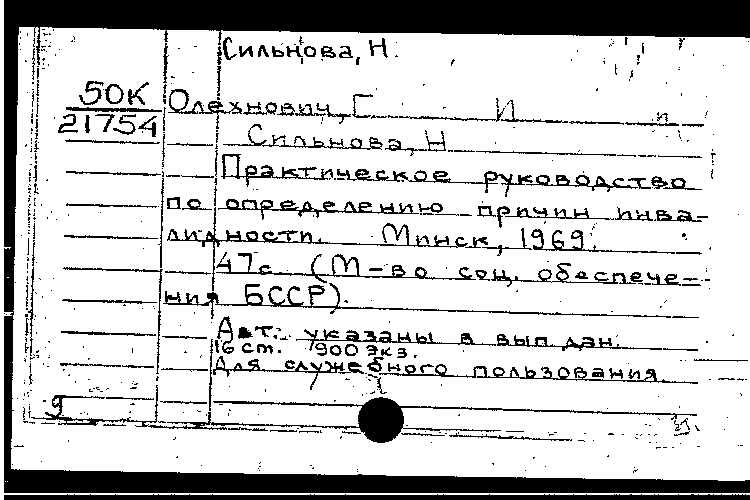 Сильнова, Н.
50К
21754
Олехнович, Г И и
Сильнова, Н
Практическое руководство
по определению причин инва-
лидности. Минск, 1969.
47с (М-во соц. обеспече-
ния БССР).
Авт. указаны в вып. дан.
16 см. 900 экз.
Для служебного пользования.
9